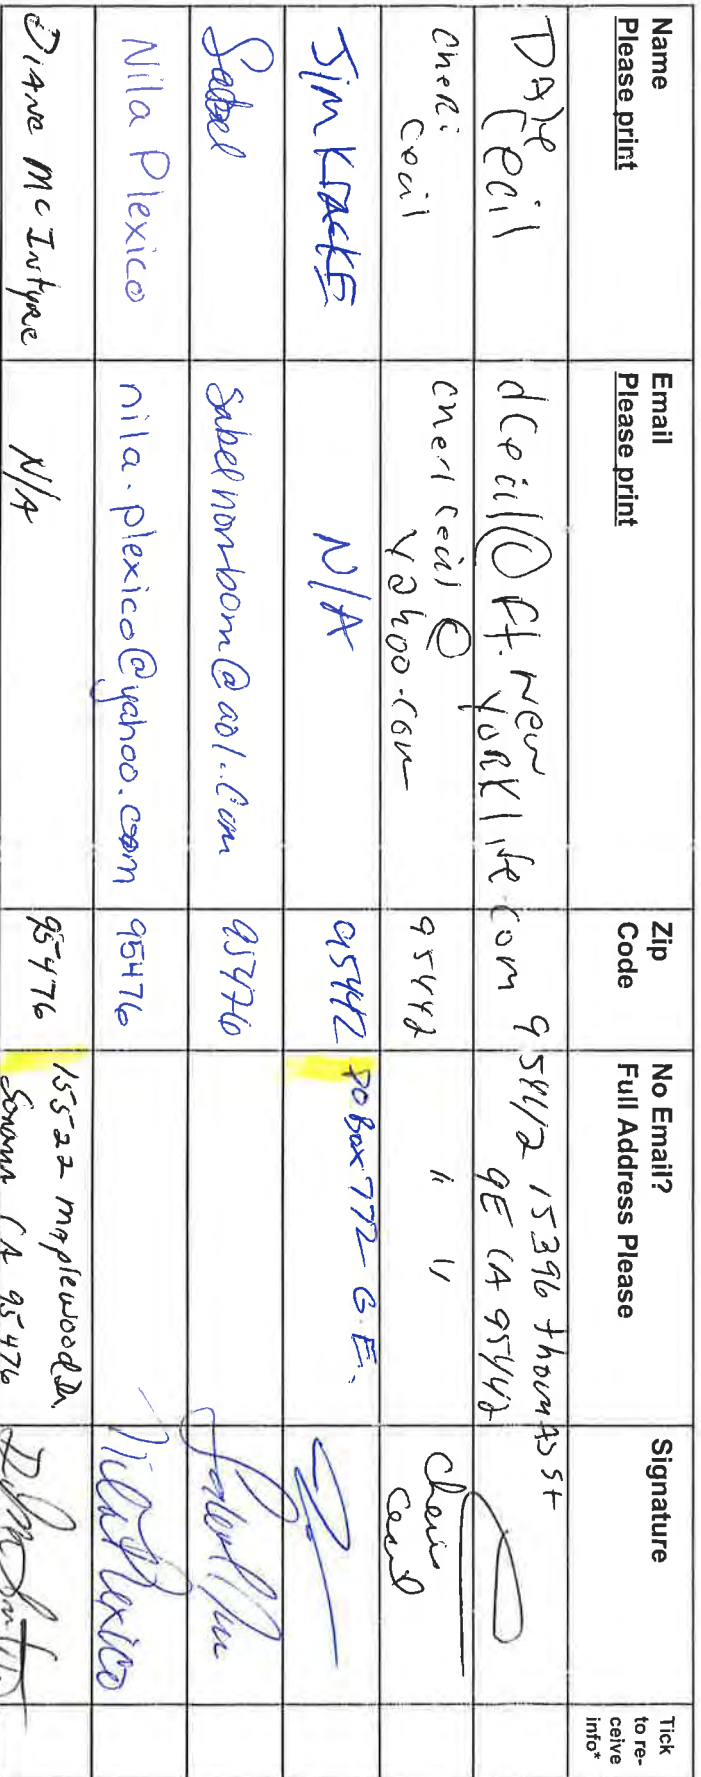 Name
Please print
Email
Please print
Zip
Code
No Email?
Full Address Please
Signature
Tick
to re-
ceive
info*
DAle
Cecil
dcecil@ft.new
yorklife.com
95442
15396 thomas st
GE CA 95442
Cheri
Cecil
chericecil@
yahoo.com
95442
" "
Cheri
Cecil
Jim KrackE
N/A
95442
PO Box 772 G.E.
Sabel
@aol.com
95476
Nila Plexico
nila.plexico@yahoo.com
95476
Nila Plexico
Diane McIntyre
N/A
95476
15522 Maplewood Dr.
Sonoma CA 95476